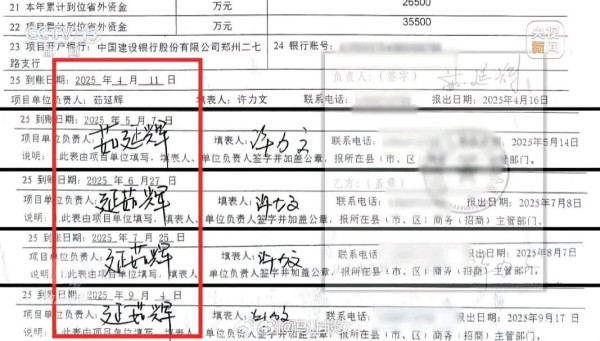 21 本年累计到位省外资金 万元 26500
22 资金 万元 35500
23 项目开户银行:中国建设银行股份有限公司郑州二七路支行 24 银行账号:
25 到账日期: 2025 年 4 月 11 日 负责人:(签字) 茹延辉
项目单位负责人:茹延辉 填表人:许力文 联系电话: 报出日期:2025年4月16日
25 到账日期: 2025 年 5 月 7 日
项目单位负责人: 茹延辉 填表人: 许力文 联系电话: 报出日期:2025年5月14日
说明:1.此表由项目单位填写,填表人、单位负责人签字并加盖公章,报所在县(市、区)商务(招商)主管部门。
25 到账日期: 2025 年 6 月 27 日 乙方:(盖章)
项目单位负责人: 延茹辉 填表人: 许力文 联系电话: 报出日期:2025年7月8日
说明:1.此表由项目单位填写,填表人、单位负责人签字并加盖公章,报所在县(市、区)商务(招商)主管部门。
25 到账日期: 2025 年 7 月 25 日
项目单位负责人: 延茹辉 填表人: 许力文 联系电话: 报出日期:2025年8月7日
说明:1.此表由项目单位填写,填表人、单位负责人签字并加盖公章,报所在县(市、区)商务(招商)主管部门。
25 到账日期: 2025 年 9 月 4 日
项目单位负责人: 延茹辉 填表人: 联系电话: 报出日期:2025年9月17日
说明:1.此表由项目单位填写,填表人、单位负责人签字并加盖公章,报所在县(市、区)商务(招商)主管部门。
CCTV 13
新闻
央视
新闻